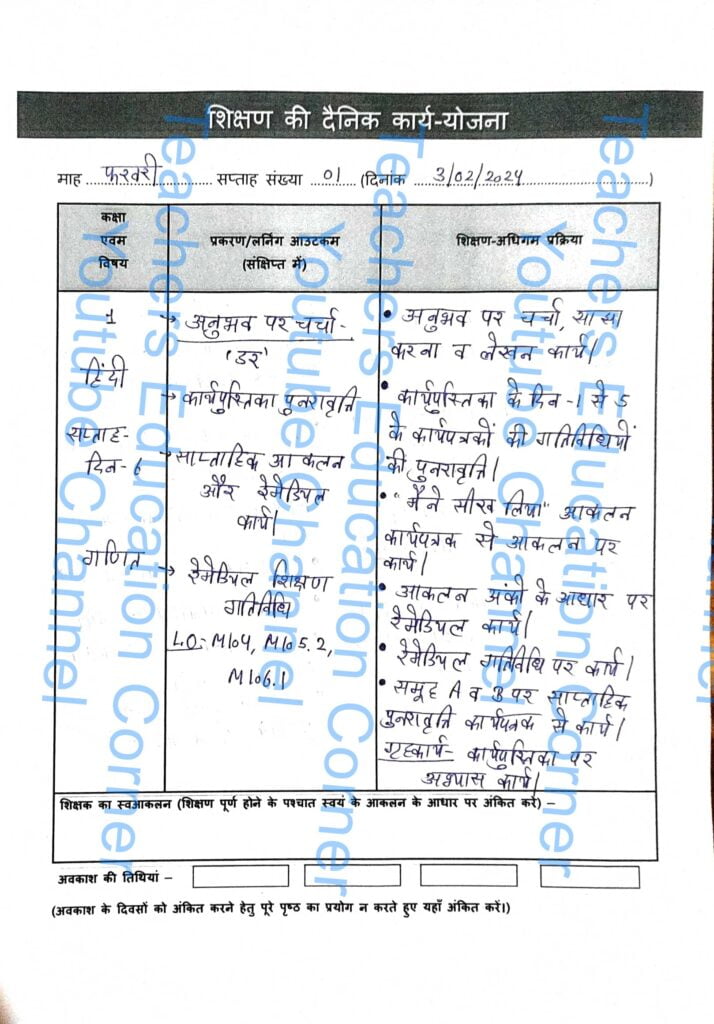 शिक्षण की दैनिक कार्य-योजना
माह फरवरी सप्ताह संख्या 01 (दिनांक 3/02/2024)
कक्षा
एवम
विषय
प्रकरण/लर्निग आउटकम
(संक्षिप्त में)
शिक्षण-अधिगम प्रक्रिया
1
हिंदी
सप्ताह-
दिन-6
गणित
→ अनुभव पर चर्चा-
'डर'
→ कार्यपुस्तिका पुनरावृत्ति
→ साप्ताहिक आकलन
और रेमेडियल
कार्य।
→ रेमेडियल शिक्षण
गतिविधि
L.O- M104, M105.2,
M106.1
• अनुभव पर चर्चा, साझा
करना व लेखन कार्य।
• कार्यपुस्तिका के दिन-1 से 5
के कार्यपत्रकों की गतिविधियों
की पुनरावृत्ति।
• "मैंने सीख लिया" आकलन
कार्यपत्रक से आकलन पर
कार्य।
• आकलन अंकों के आधार पर
रेमेडियल कार्य।
• रेमेडियल गतिविधि पर कार्य।
• समूह A व B पर साप्ताहिक
पुनरावृत्ति कार्यपत्रक से कार्य।
गृहकार्य- कार्यपुस्तिका पर
अभ्यास कार्य।
शिक्षक का स्वआकलन (शिक्षण पूर्ण होने के पश्चात स्वयं के आकलन के आधार पर अंकित करें) –
अवकाश की तिथियां –
(अवकाश के दिवसों को अंकित करने हेतु पूरे पृष्ठ का प्रयोग न करते हुए यहाँ अंकित करें।)
Teachers Education Corner
Youtube Channel
Teachers Education Corner
Youtube Channel
Teachers Education Corner
Youtube Channel